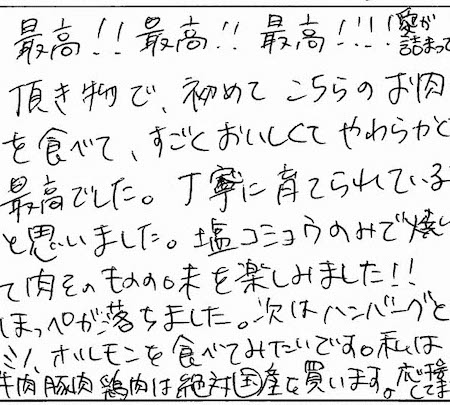 最高!! 最高!! 最高!!! 愛が
詰まって
頂き物で、初めてこちらのお肉
を食べて、すごくおいしくてやわらかく
最高でした。丁寧に育てられている
と思いました。塩コショウのみで焼い
て肉そのものの味を楽しみました!!
ほっぺが落ちました。次はハンバーグと
ミノ、ホルモンを食べてみたいです。私は
牛肉豚肉鶏肉は絶対国産を買います。応援してま